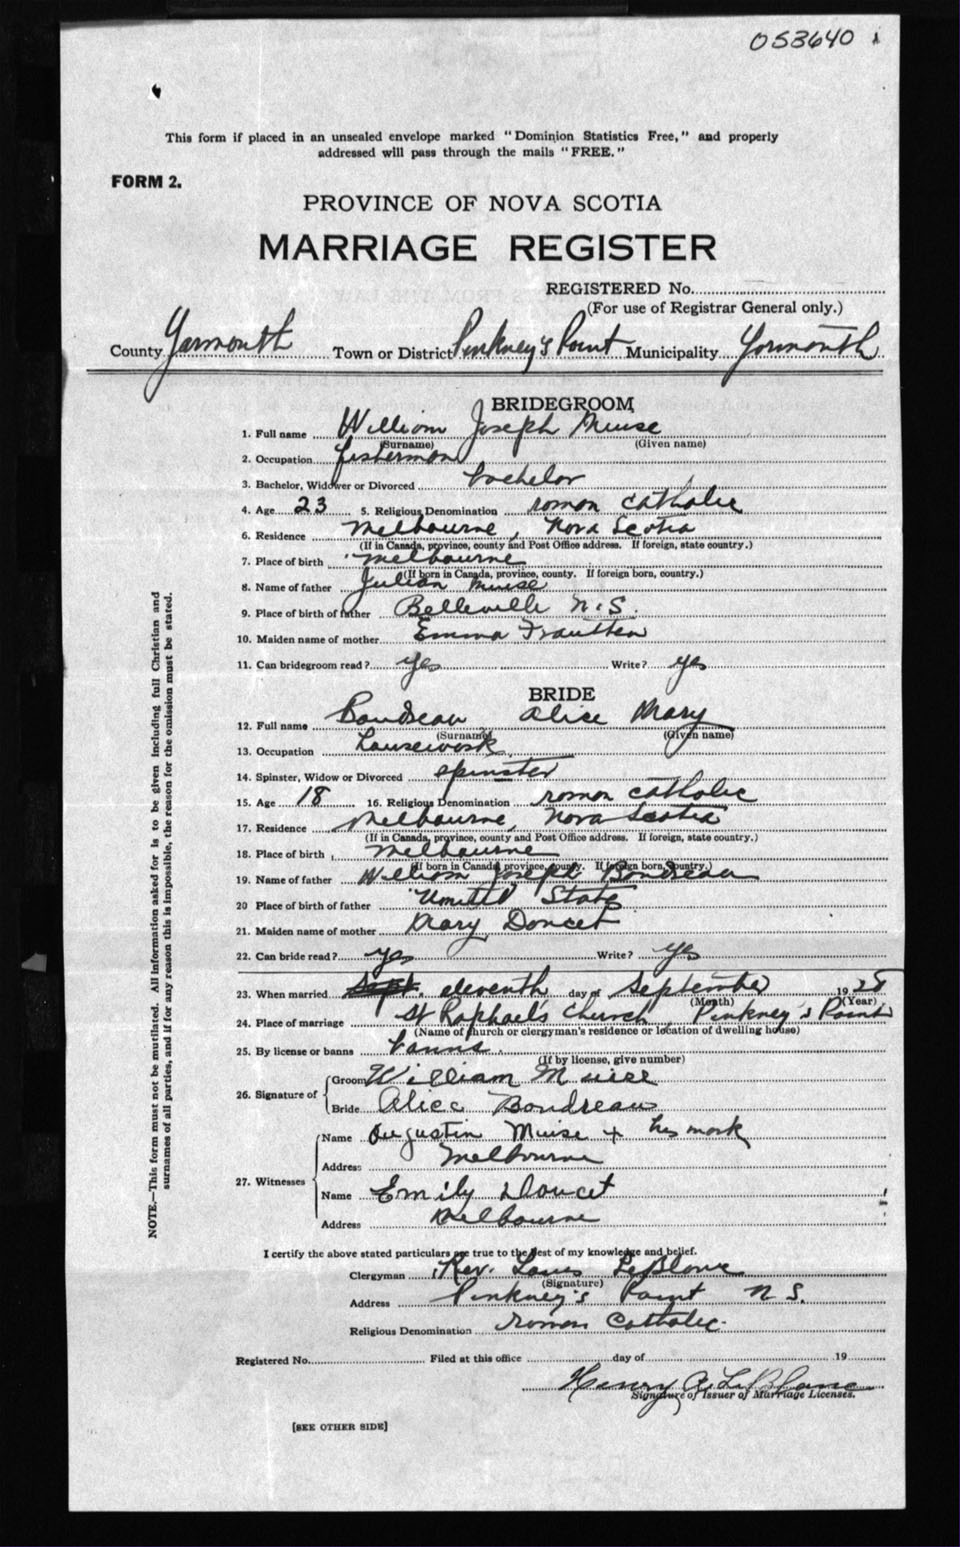 053640
This form if placed in an unsealed envelope marked "Dominion Statistics Free," and properly
addressed will pass through the mails "FREE."
FORM 2.
PROVINCE OF NOVA SCOTIA
MARRIAGE REGISTER
REGISTERED No.
(For use of Registrar General only.)
County Yarmouth Town or District Pinkney's Point Municipality Yarmouth
BRIDEGROOM
1. Full name William Joseph Muise
(Surname) (Given name)
2. Occupation fisherman
3. Bachelor, Widower or Divorced bachelor
4. Age 23 5. Religious Denomination roman catholic
6. Residence Melbourne, Nova Scotia
(If in Canada, province, county and Post Office address. If foreign, state country.)
7. Place of birth Melbourne
(If born in Canada, province, county. If foreign born, country.)
8. Name of father Julian Muise
9. Place of birth of father Belleville N.S.
10. Maiden name of mother Emma
11. Can bridegroom read? yes Write? yes
BRIDE
12. Full name Boudreau Alice Mary
(Surname) (Given name)
13. Occupation housework
14. Spinster, Widow or Divorced spinster
15. Age 18 16. Religious Denomination roman catholic
17. Residence Melbourne, Nova Scotia
(If in Canada, province, county and Post Office address. If foreign, state country.)
18. Place of birth Melbourne
(If born in Canada, province, county. If foreign born, country.)
19. Name of father William Joseph Boudreau
20 Place of birth of father United States
21. Maiden name of mother Mary Doucet
22. Can bride read? yes Write? yes
23. When married Sept. eleventh day of September 1928
(Month) (Year)
24. Place of marriage St Raphael's Church, Pinkney's Point
(Name of church or clergyman's residence or location of dwelling house)
25. By license or banns banns.
(If by license, give number)
26. Signature of Groom William Muise
Bride Alice Boudreau
27. Witnesses Name Augustin Muise + his mark
Address Melbourne
Name Emily Doucet
Address Melbourne
I certify the above stated particulars are true to the best of my knowledge and belief.
Clergyman Rev. Louis LeBlanc
(Signature)
Address Pinkney's Point N S.
Religious Denomination roman catholic.
Registered No. Filed at this office day of 19
Henry A. LeBlanc
Signature of Issuer of Marriage Licenses.
[SEE OTHER SIDE]
NOTE.—This form must not be mutilated. All information asked for is to be given including full Christian and
surnames of all parties, and if for any reason this is impossible, the reason for the omission must be stated.